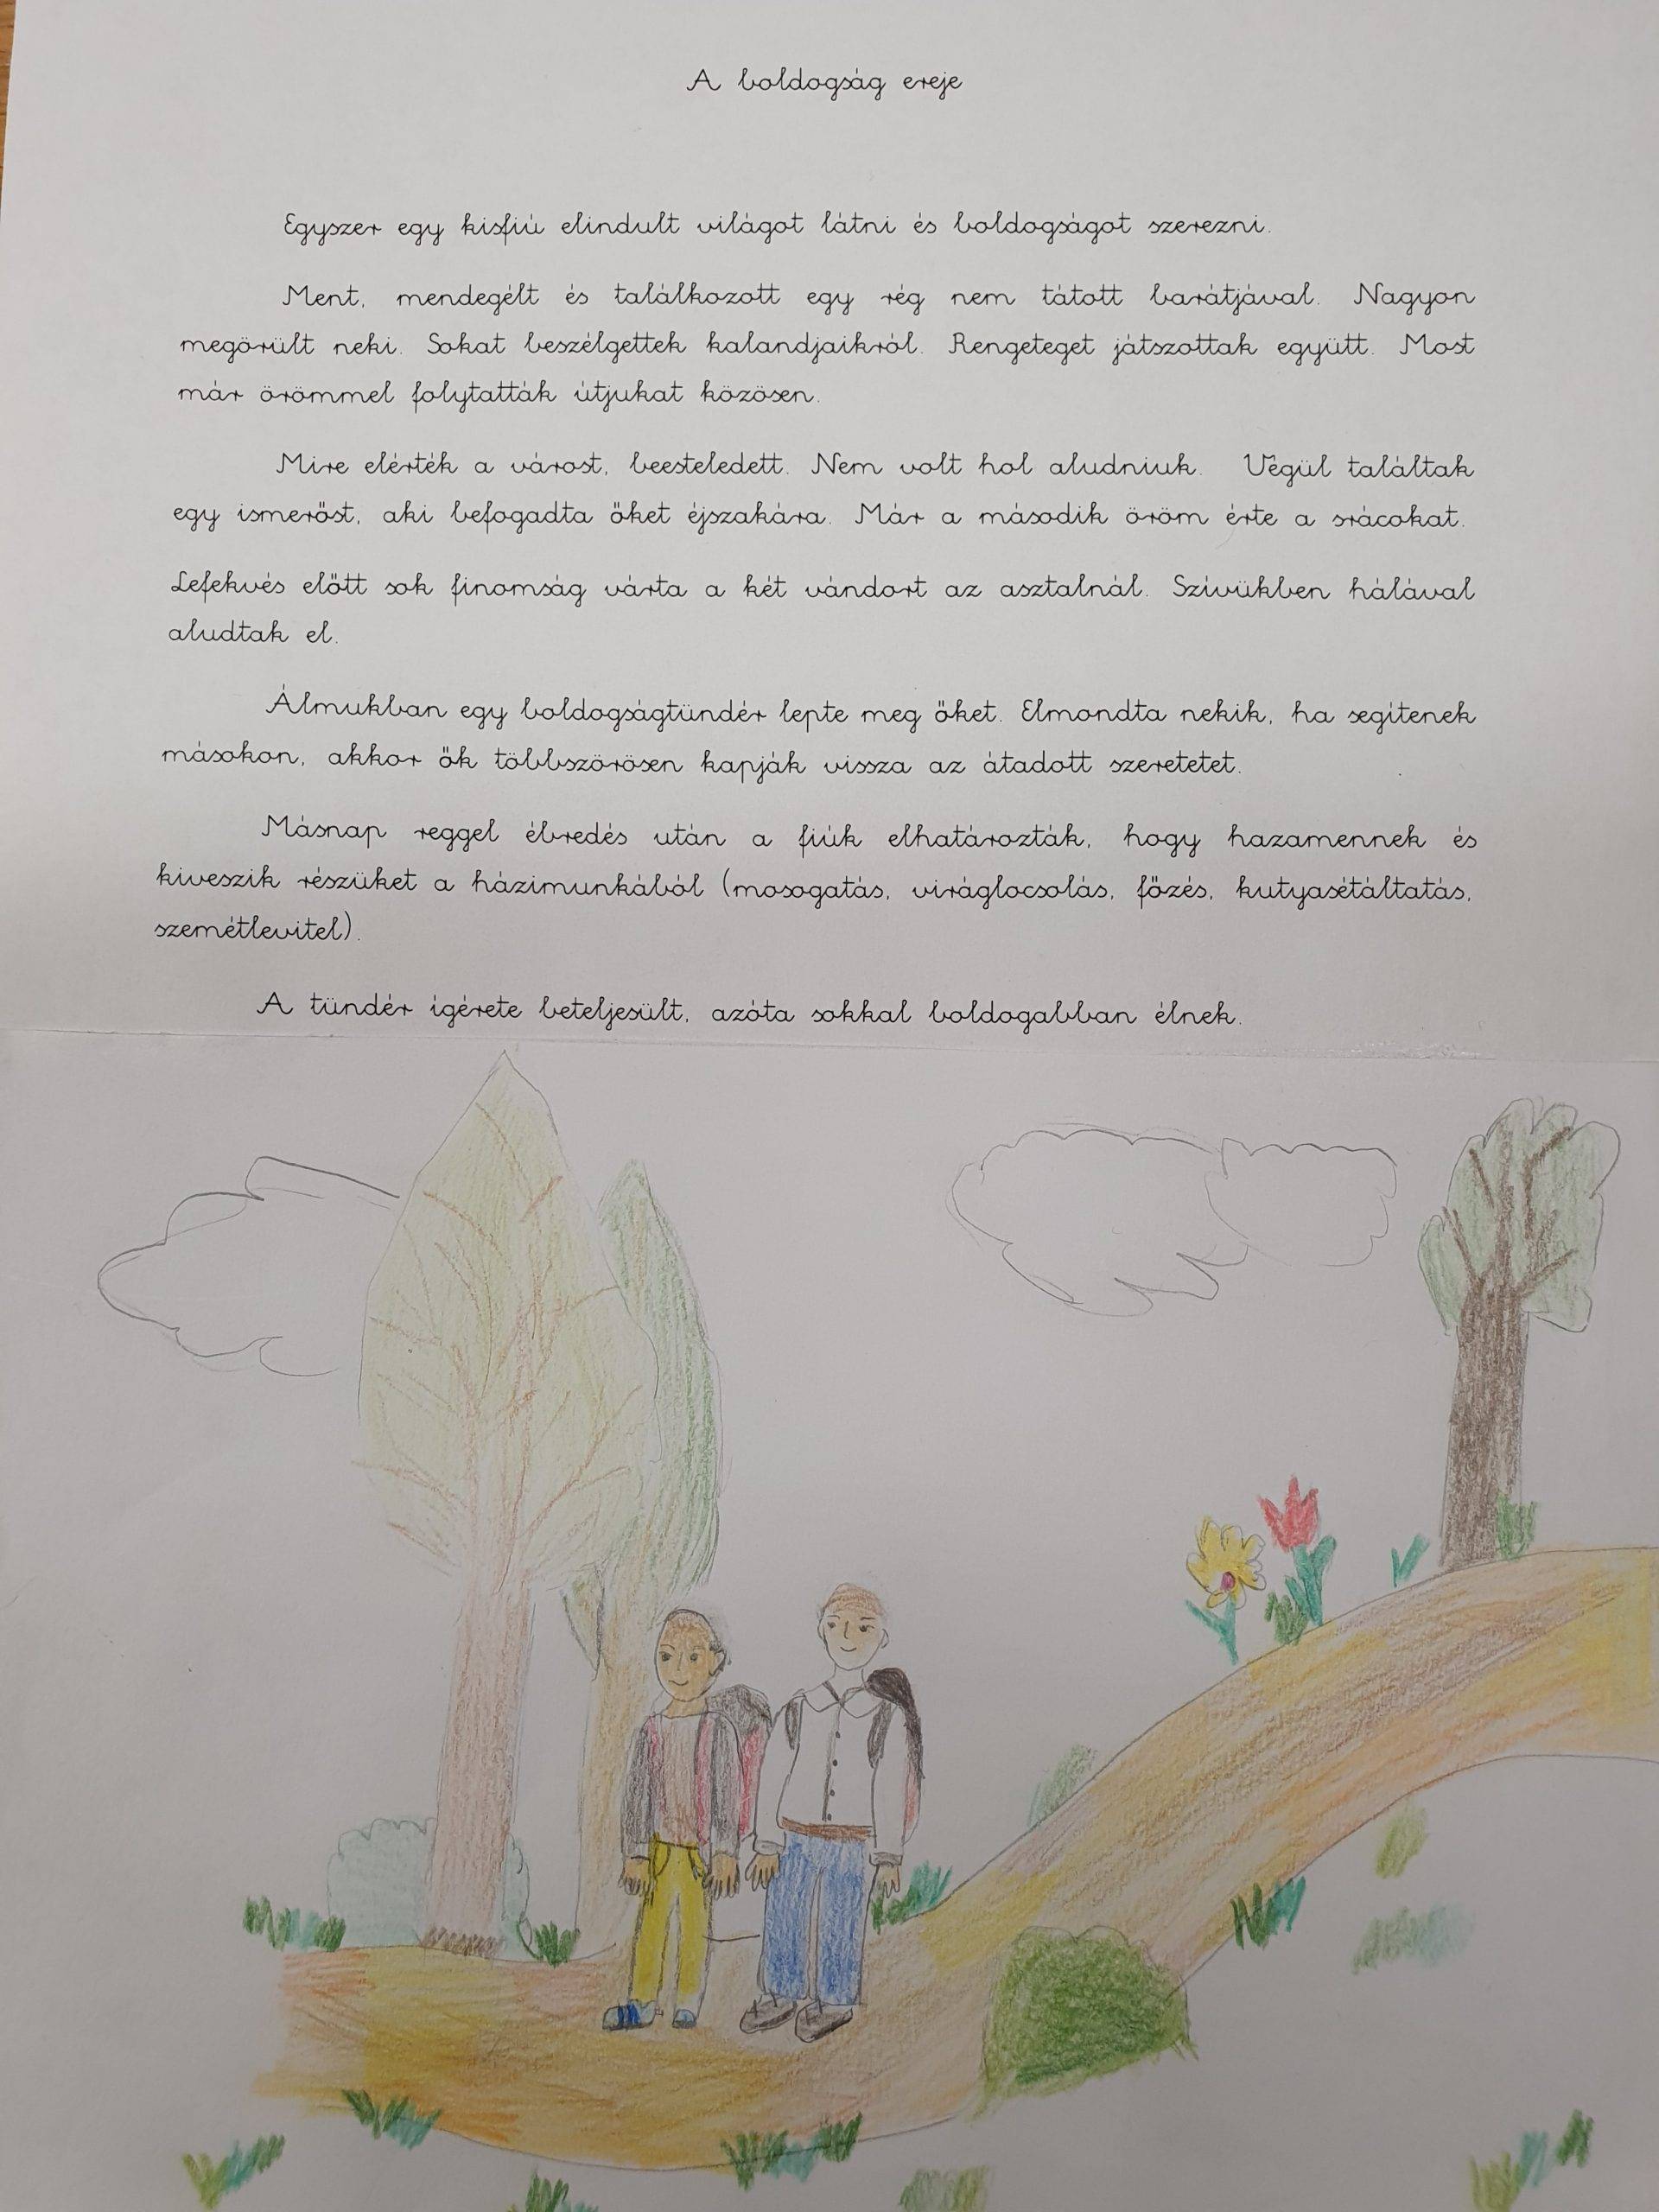 A boldogság ereje
Egyszer egy kisfiú elindult világot látni és boldogságot szerezni.
Ment, mendegélt és találkozott egy rég nem tátott barátjával. Nagyon
megörült neki. Sokat beszélgettek kalandjaikról. Rengeteget játszottak együtt. Most
már örömmel folytatták útjukat közösen.
Mire elérték a várost, beesteledett. Nem volt hol aludniuk. Végül találtak
egy ismerőst, aki befogadta őket éjszakára. Már a második öröm érte a srácokat.
Lefekvés előtt sok finomság várta a két vándort az asztalnál. Szívükben hálával
aludtak el.
Álmukban egy boldogságtündér lepte meg őket. Elmondta nekik, ha segítenek
másokon, akkor ők többszörösen kapják vissza az átadott szeretetet.
Másnap reggel ébredés után a fiúk elhatározták, hogy hazamennek és
kiveszik részüket a házimunkából (mosogatás, viráglocsolás, főzés, kutyasétáltatás,
szemétlevitel).
A tündér ígérete beteljesült, azóta sokkal boldogabban élnek.